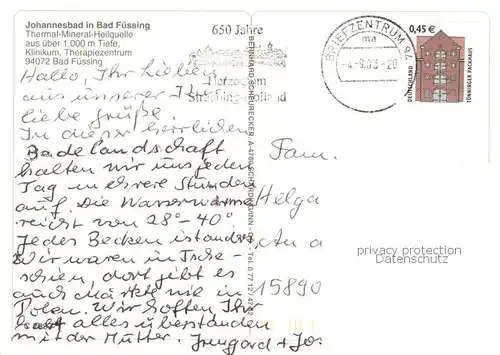 Johannesbad in Bad Füssing
Thermal-Mineral-Heilquelle
aus über 1.000 m Tiefe,
Klinikum, Therapiezentrum
94072 Bad Füssing
650 Jahre
Herzogtum
Straubing-Holland
BRIEFZENTRUM 94
ma
-4.-9.03-20
0,45 €
DEUTSCHLAND
TÖNNINGER PACKHAUS
Hallo, Ihr Lieben
aus unserer
liebe Grüße.
In dieser herrlichen
Badelandschaft
halten wir uns jeden
Tag mehrere Stunden
auf. Die Wasserwärme
reicht von 28°-40°
Jedes Becken ist anders
Wir waren in Tsche-
chien, dort gibt es
auch Märkte wie in
Polen. Wir hoffen Ihr
habt alles überstanden
mit der Mutter. Irmgard + Jo
BERNHARD SCHEURECKER A-4780 SCHÄRDING/INN
Fam.
Helga
An a
15890
privacy protection
Datenschutz